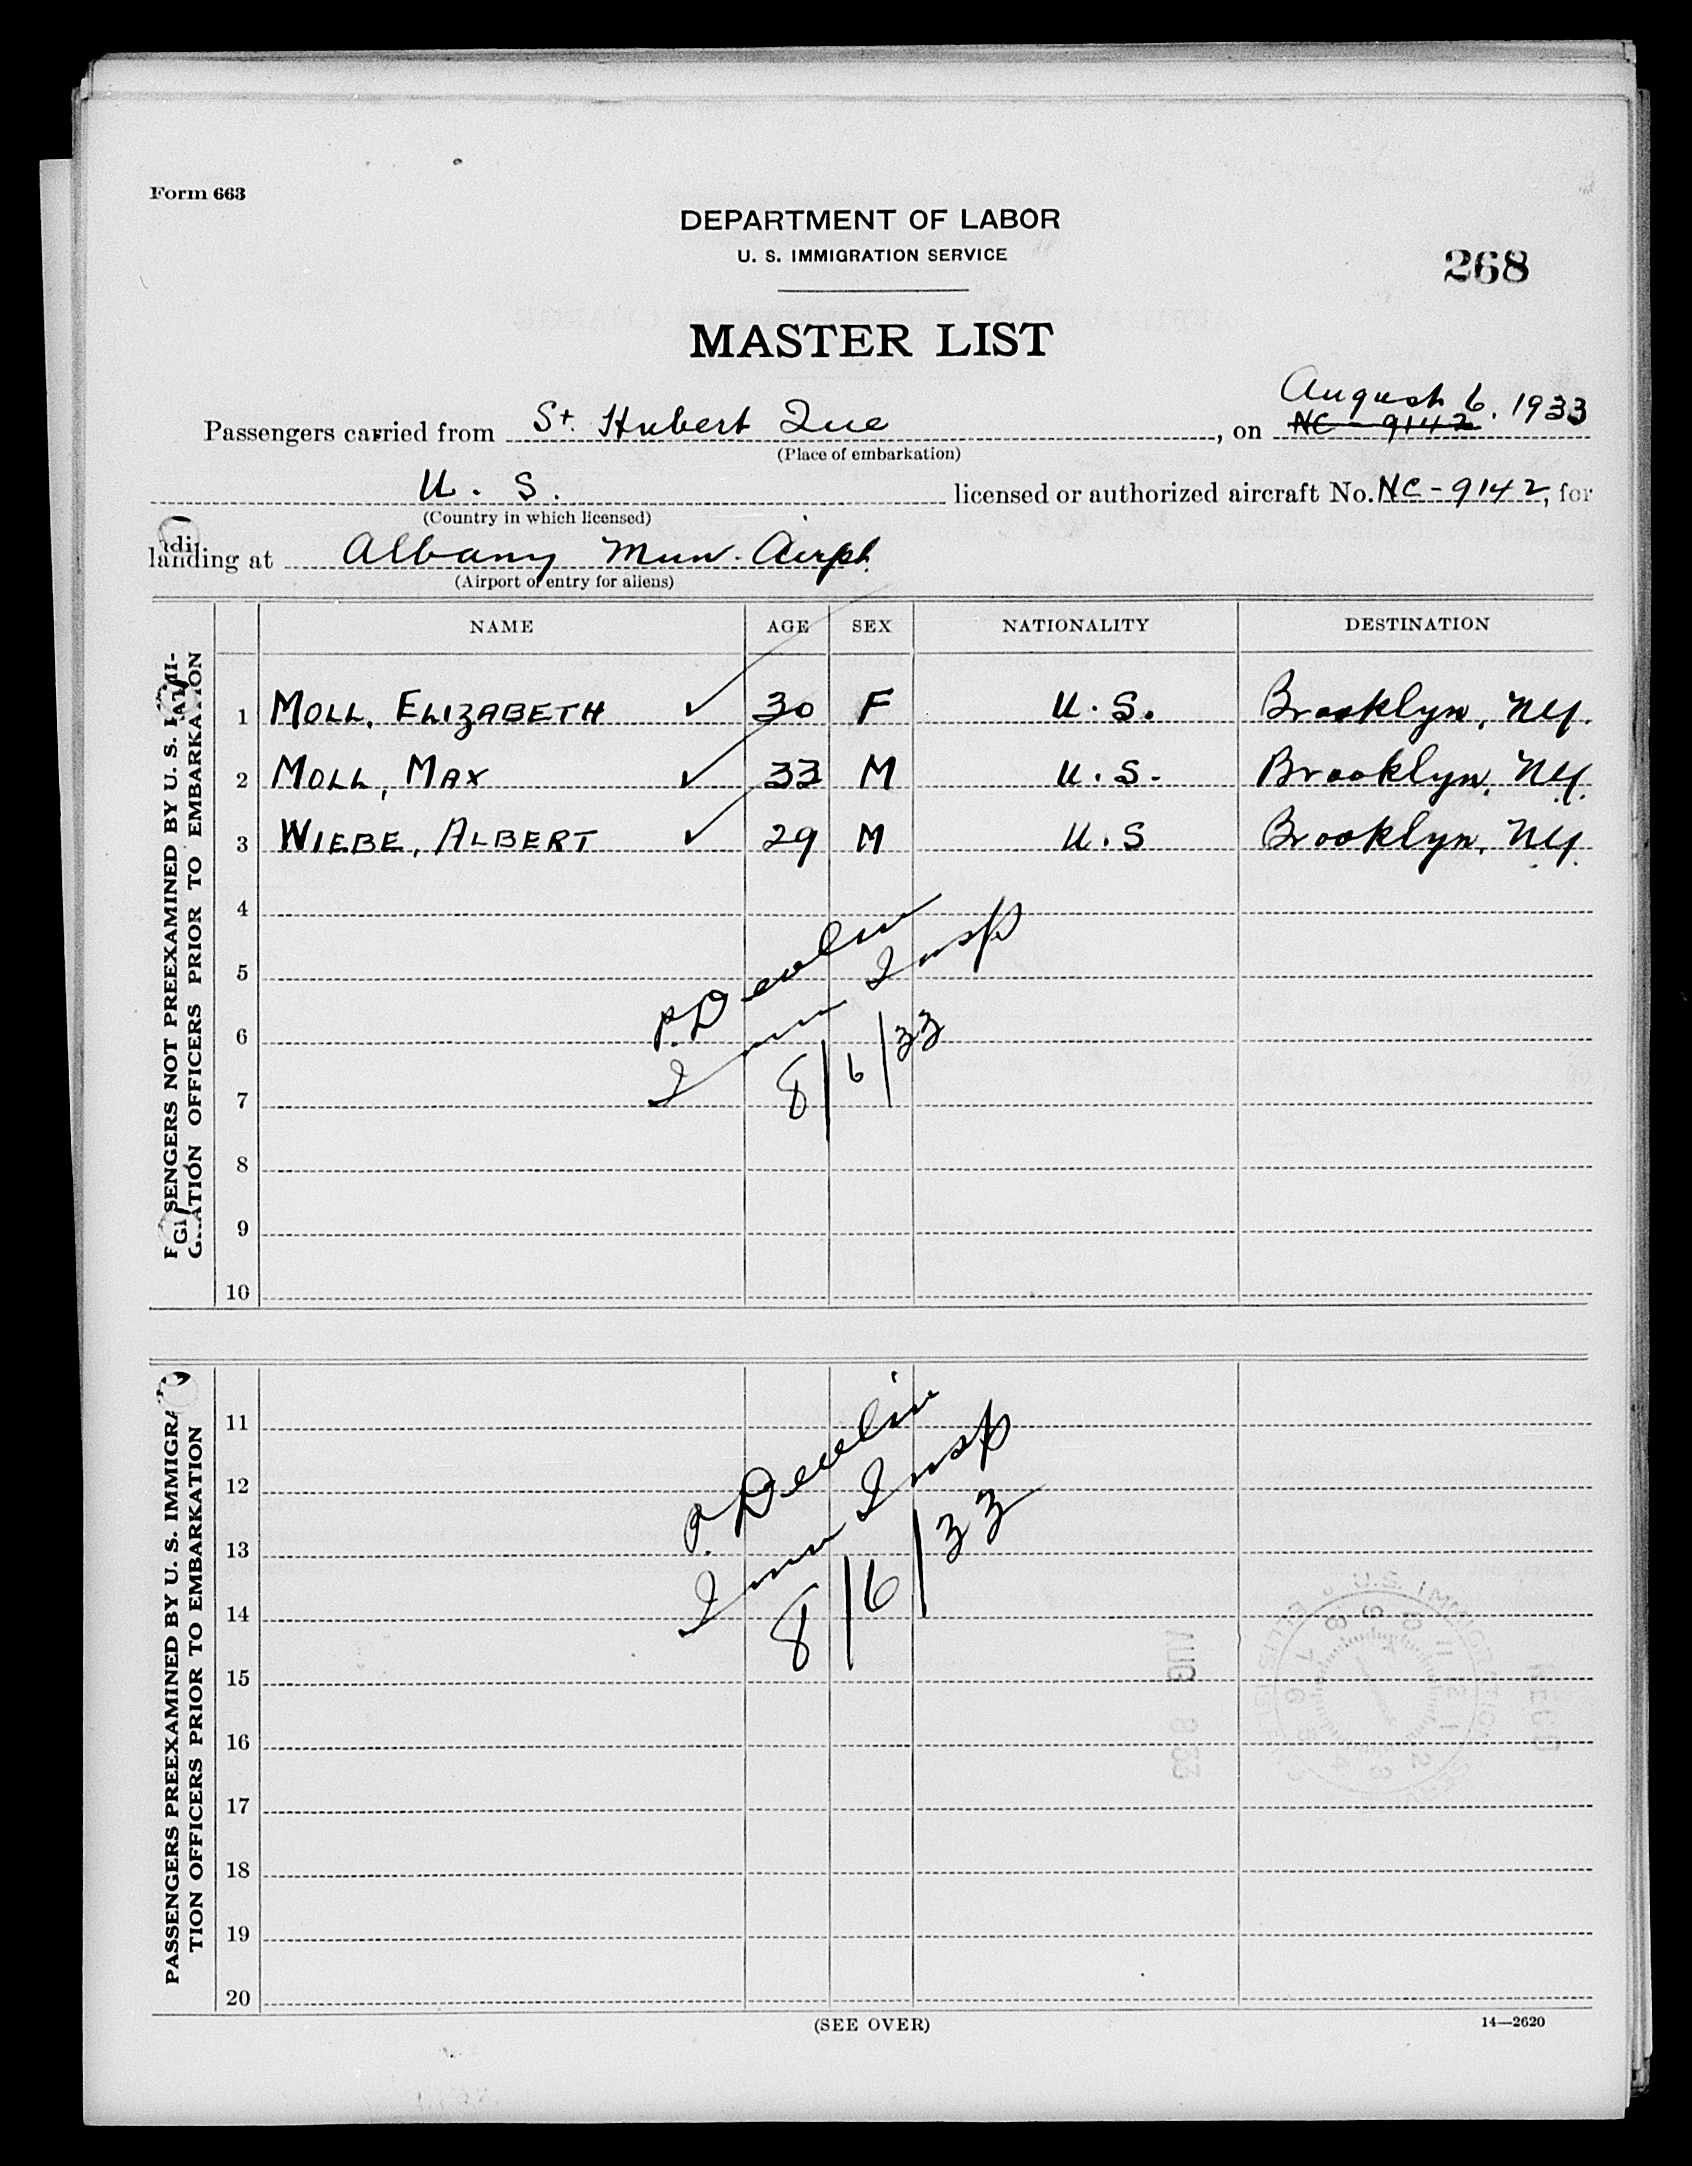 Form 663
DEPARTMENT OF LABOR
U. S. IMMIGRATION SERVICE
268
MASTER LIST
August 6, 1933
Passengers carried from St. Hubert Que, on NC-9142
(Place of embarkation)
U. S. licensed or authorized aircraft No. NC-9142, for
(Country in which licensed)
landing at Albany Mun. Airpt.
(Airport of entry for aliens)
NAME AGE SEX NATIONALITY DESTINATION
1 MOLL, ELIZABETH ✓ 30 F U.S. Brooklyn, NY.
2 MOLL, MAX ✓ 33 M U.S. Brooklyn, NY.
3 WIEBE, ALBERT ✓ 29 M U.S Brooklyn, NY.
4
5
6
7
8
9
10
P. Devlin
Imm Insp
8/6/33
SENGERS NOT PREEXAMINED BY U. S.
OFFICERS PRIOR TO
11
12
13
14
15
16
17
18
19
20
P. Devlin
Imm Insp
8/6/33
PASSENGERS PREEXAMINED BY U. S. IMMIGRA
TION OFFICERS PRIOR TO EMBARKATION
U.S. IMMIGRATION
AUG
(SEE OVER)
14—2620